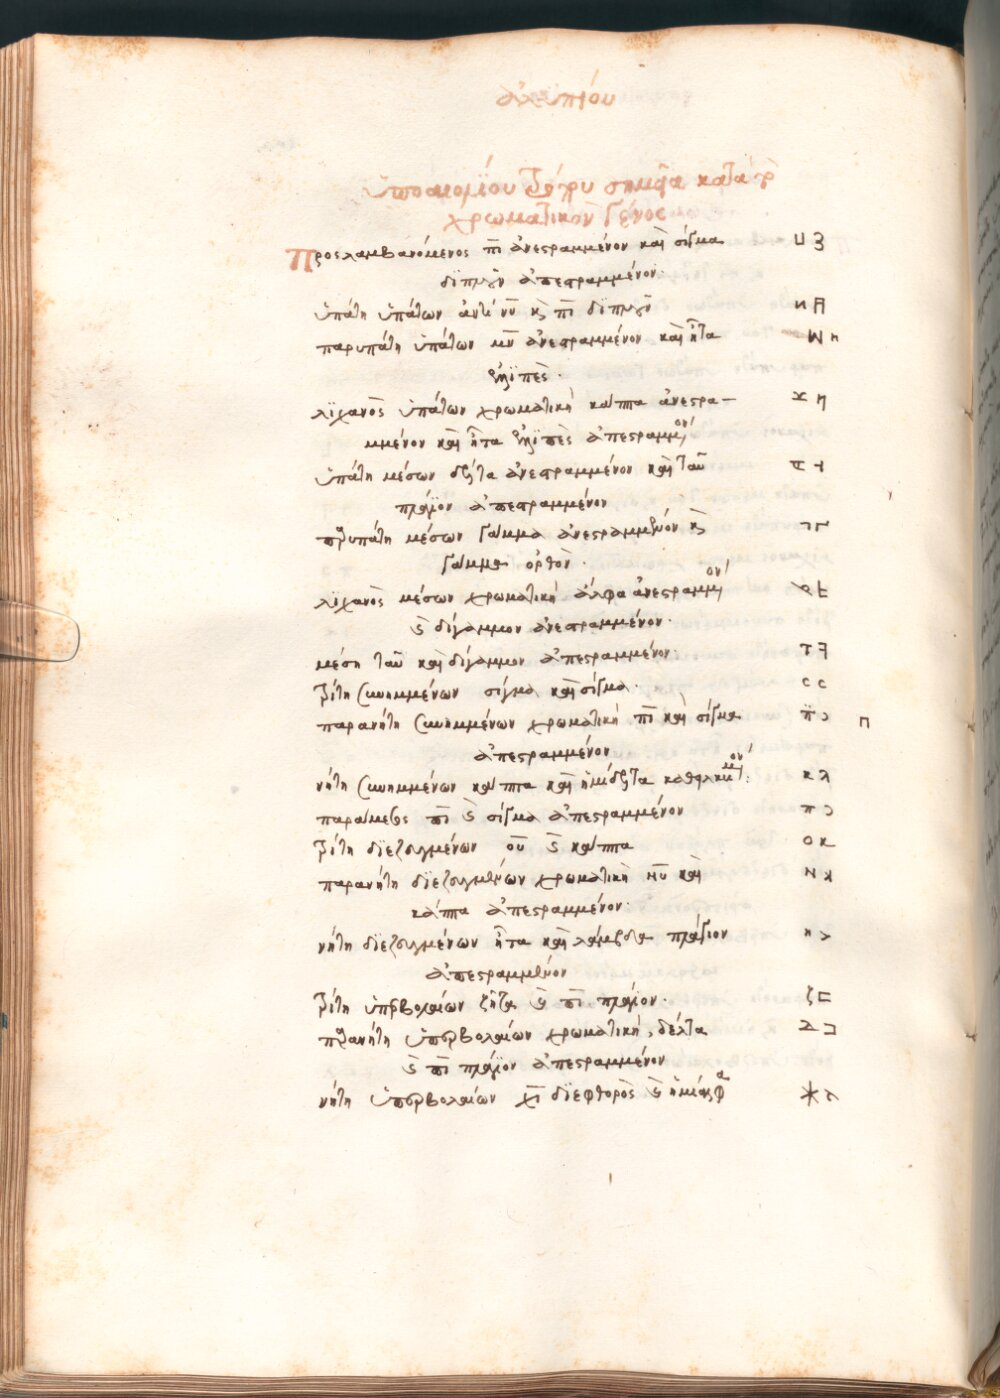 ἀλυπίου
ὑποαιολίου τρόπου σημεῖα κατὰ τὸ
χρωματικὸν γένος
Προσλαμβανόμενος πῖ ἀνεστραμμένον καὶ σίγμα
διπλοῦν ἀπεστραμμένον·
ὑπάτη ὑπάτων ἀντίνυ καὶ πῖ διπλοῦν
παρυπάτη ὑπάτων μῦ ἀνεστραμμένον καὶ ἦτα
ἐλλιπὲς·
λιχανὸς ὑπάτων χρωματικὴ κάππα ἀνεστρα-
μμένον καὶ ἦτα ἐλλιπὲς ἀπεστραμμένον
ὑπάτη μέσων ζῆτα ἀνεστραμμένον καὶ ταῦ
πλάγιον ἀπεστραμμένον
παρυπάτη μέσων γάμμα ἀνεστραμμένον καὶ
γάμμα ὀρθὸν·
λιχανὸς μέσων χρωματικὴ ἄλφα ἀνεστραμμένον
καὶ δίγαμμον ἀνεστραμμένον·
μέση ταῦ καὶ δίγαμμον ἀπεστραμμένον· Τ
τρίτη συνημμένων σίγμα καὶ σίγμα· C C
παρανήτη συνημμένων χρωματικὴ πῖ καὶ σίγμα π Ͻ π
ἀπεστραμμένον
νήτη συνημμένων κάππα καὶ ἡμίδελτα καθειλκυσμένον:
παράμεσος πῖ καὶ σίγμα ἀπεστραμμένον π Ͻ
τρίτη διεζευγμένων οὖ καὶ κάππα Ο Κ
παρανήτη διεζευγμένων χρωματικὴ νῦ καὶ Ν
κάππα ἀπεστραμμένον·
νήτη διεζευγμένων ἦτα καὶ λάμβδα πλάγιον
ἀπεστραμμένον
τρίτη ὑπερβολαίων ζῆτα καὶ πῖ πλάγιον· ζ ⊏
παρανήτη ὑπερβολαίων χρωματικὴ, δέλτα
καὶ πῖ πλάγιον ἀπεστραμμένον
νήτη ὑπερβολαίων χῖ διεφθορὸς καὶ